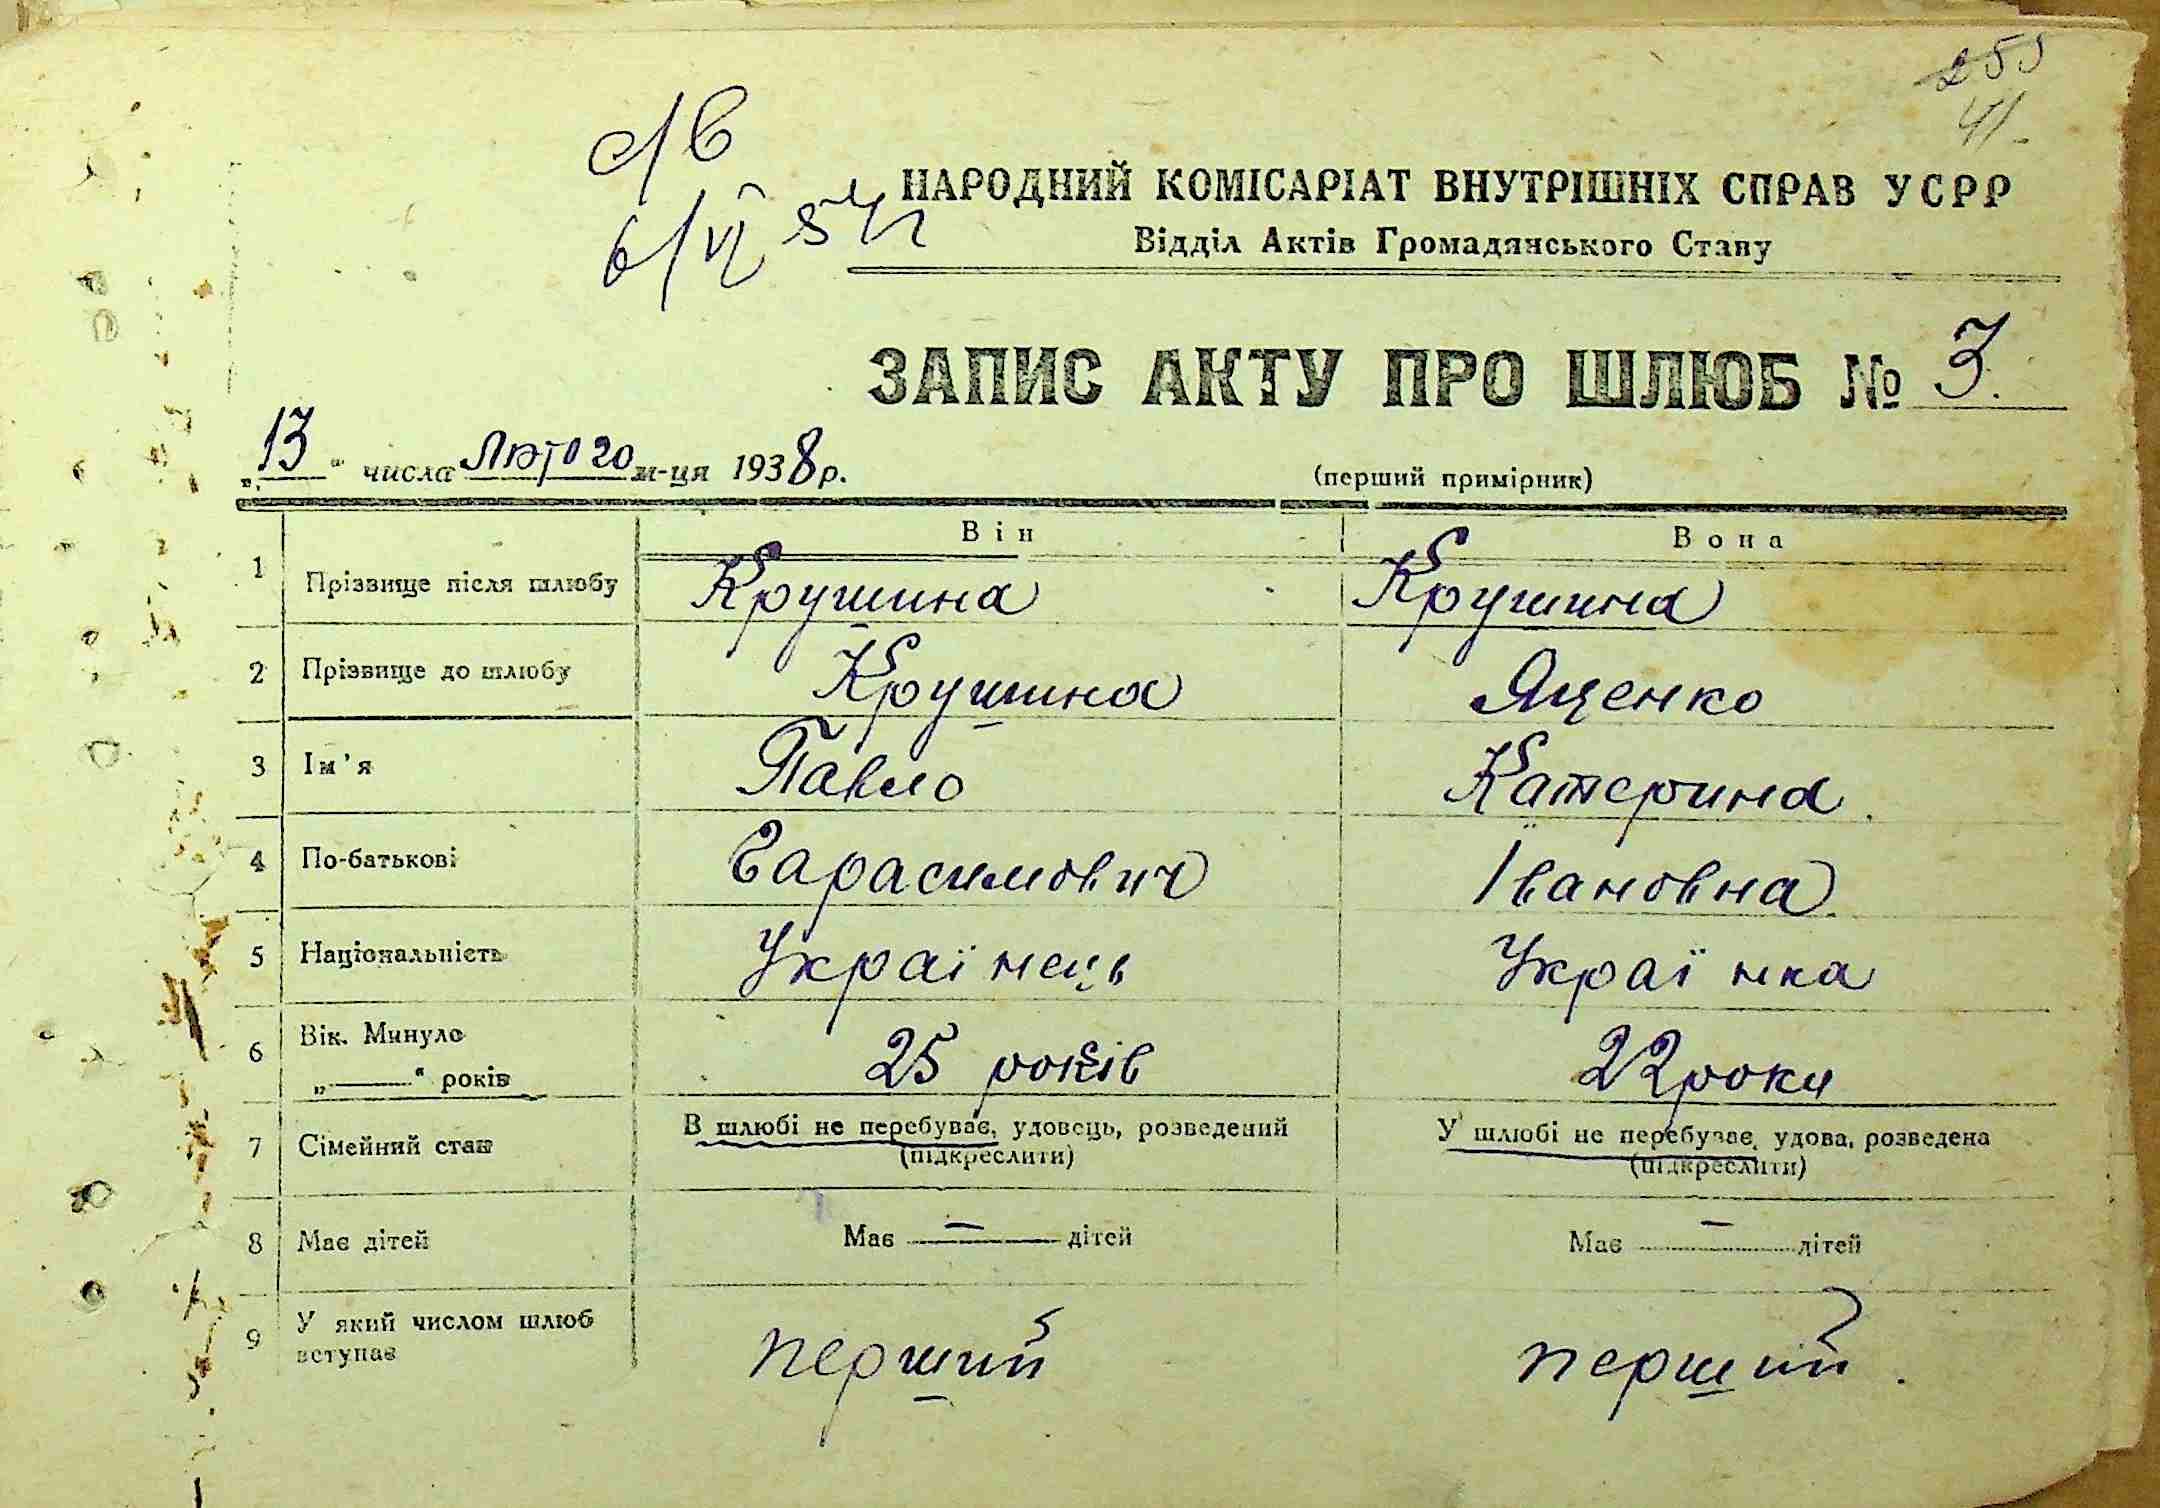 255
41
с/в
6/VI 57г
НАРОДНИЙ КОМІСАРІАТ ВНУТРІШНІХ СПРАВ УСРР
Відділ Актів Громадянського Стану
ЗАПИС АКТУ ПРО ШЛЮБ № 3.
„13“ числа Лютого м-ця 1938р. (перший примірник)
Він Вона
1 Прізвище після шлюбу Крушина Крушина
2 Прізвище до шлюбу Крушина Яценко
3 Ім'я Павло Катерина
4 По-батькові Гарасимович Івановна
5 Національність Українець Українка
6 Вік. Минуло
„—“ років 25 років 22 роки
7 Сімейний стан В шлюбі не перебуває, удовець, розведений У шлюбі не перебуває, удова, розведена
(підкреслити) (підкреслити)
8 Має дітей Має — дітей Має — дітей
9 У який числом шлюб
вступає перший перший.